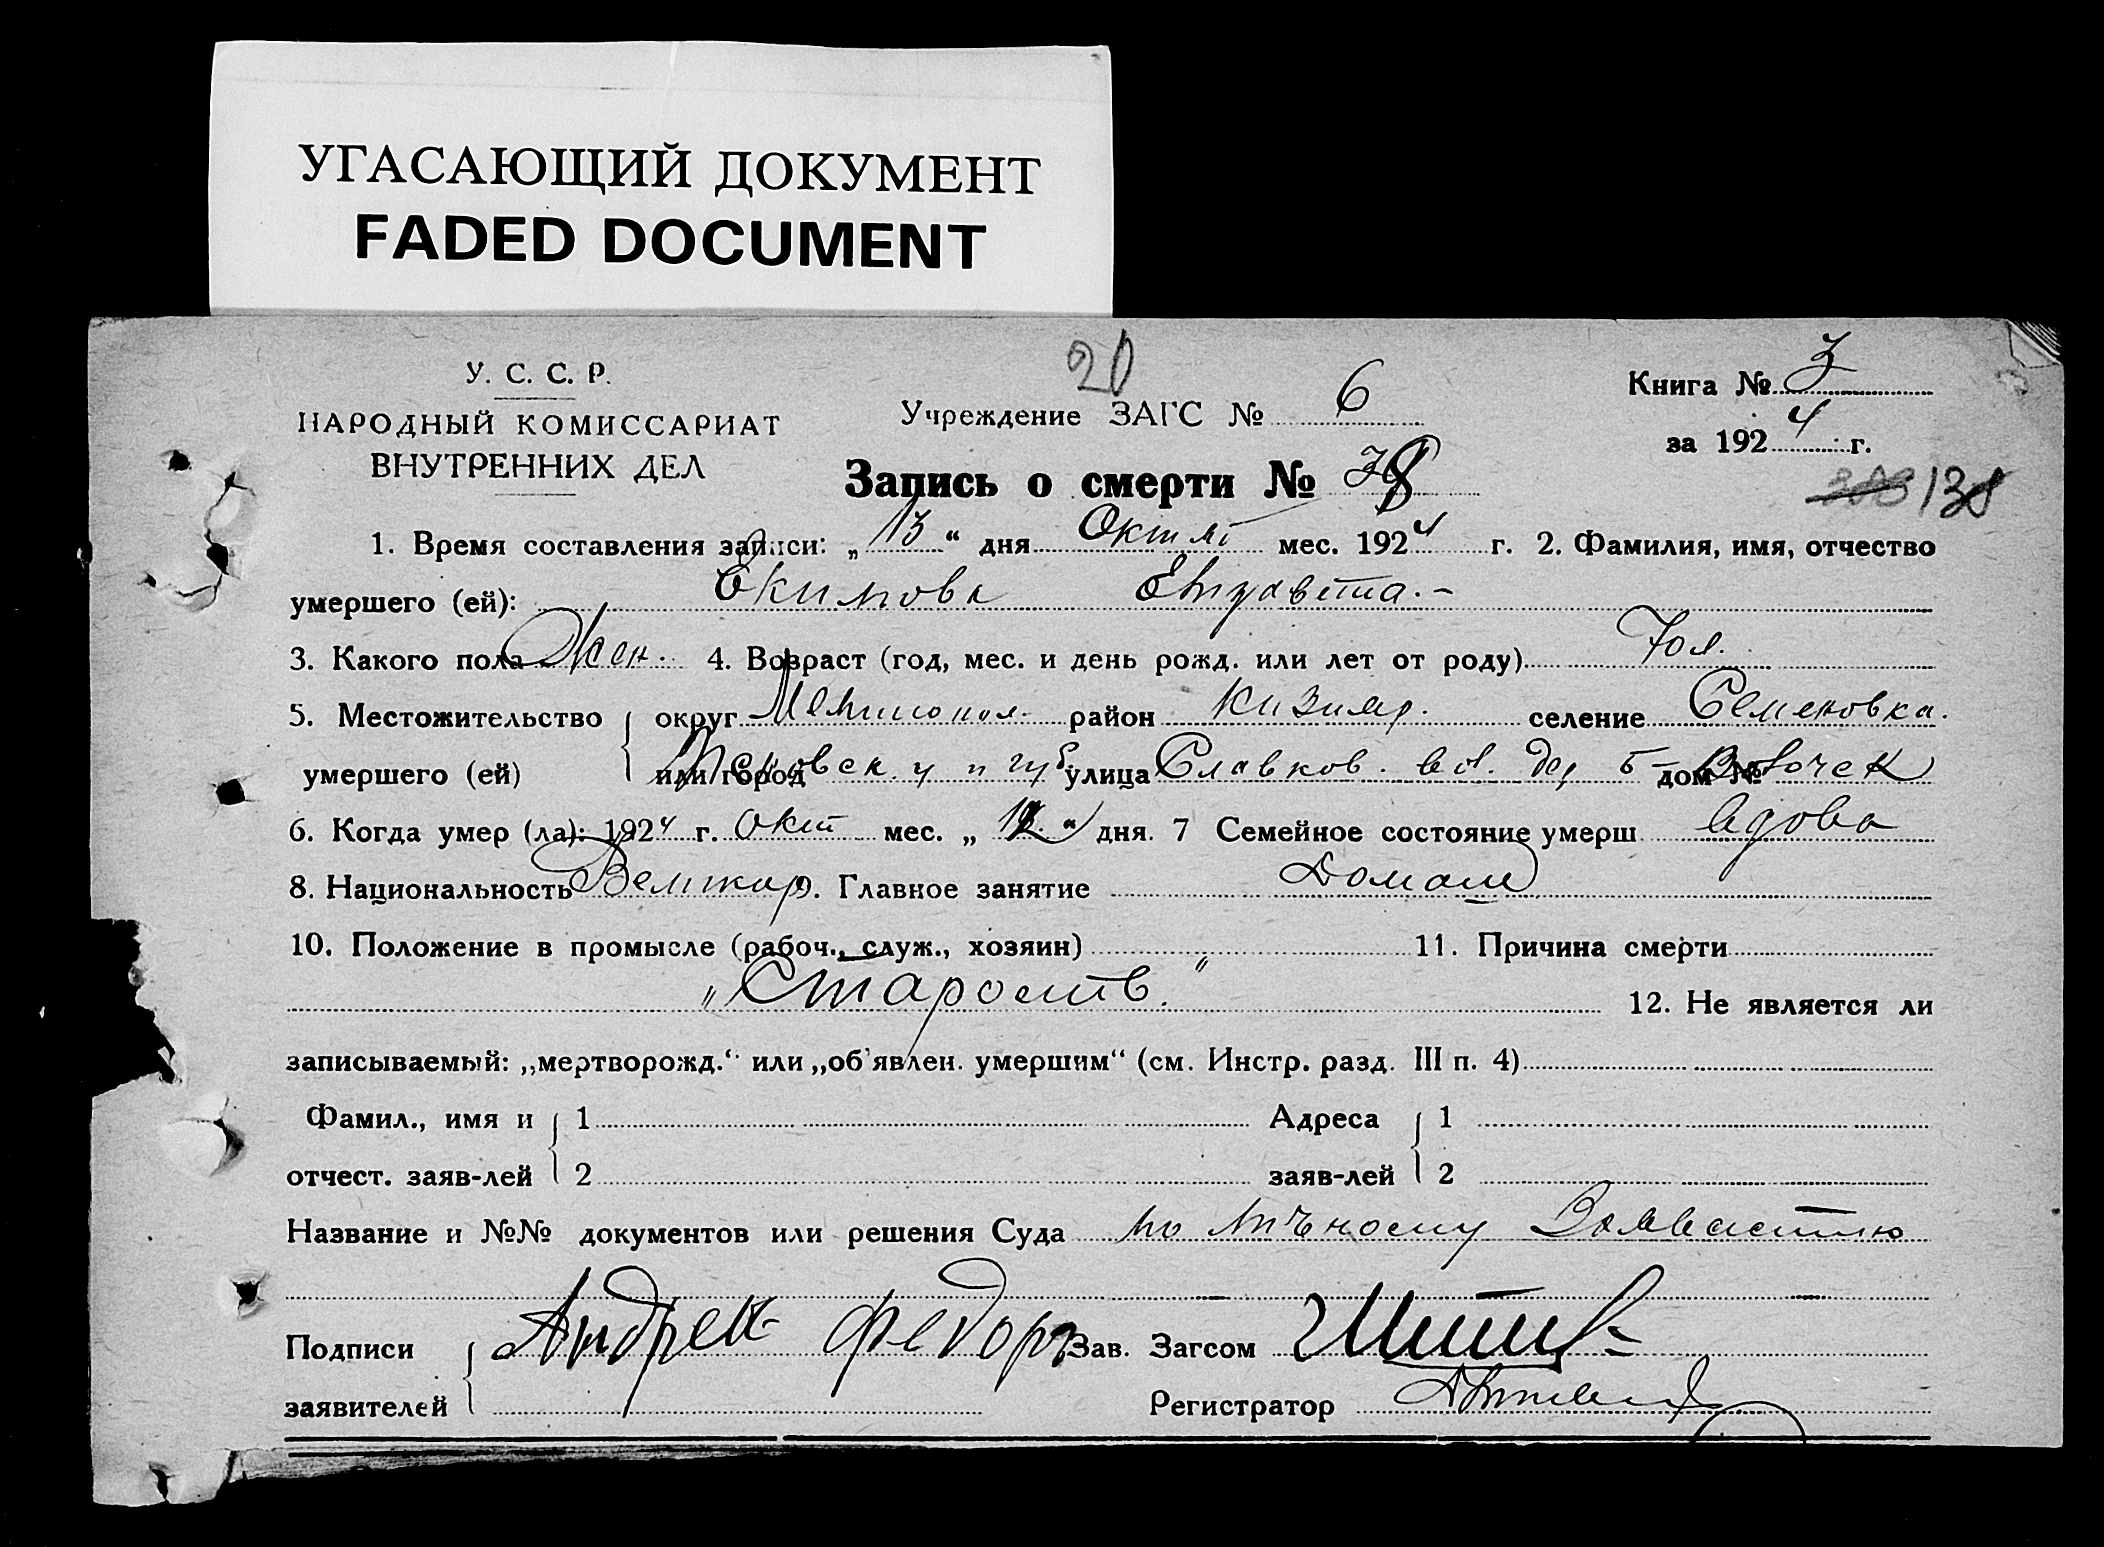 УГАСАЮЩИЙ ДОКУМЕНТ
FADED DOCUMENT
У. С. С. Р.
НАРОДНЫЙ КОМИССАРИАТ
ВНУТРЕННИХ ДЕЛ
20
Учреждение ЗАГС № 6
Книга № 3
за 1924 г.
Запись о смерти № 38
138
1. Время составления записи: „13“ дня Октяб мес. 1924 г. 2. Фамилия, имя, отчество
умершего (ей): Екимова Елизавета.-
3. Какого пола Жен. 4. Возраст (год, мес. и день рожд. или лет от роду) 70 л.
5. Местожительство округ Мелитопол. район Кизияр. селение Семеновка.
умершего (ей) или город Псковск. у и губ улица Славков. вол. дер Б- дом № Волочек
6. Когда умер (ла): 1924 г. Окт мес. „12“ дня. 7 Семейное состояние умерш Вдова
8. Национальность Великор. 9. Главное занятие Домаш
10. Положение в промысле (рабоч., служ., хозяин) 11. Причина смерти
„Старость.“ 12. Не является ли
записываемый: „мертворожд.“ или „об'явлен. умершим“ (см. Инстр. разд. III п. 4)
Фамил., имя и 1 Адреса 1
отчест. заяв-лей 2 заяв-лей 2
Название и №№ документов или решения Суда по личному
Подписи Андрей Федор Зав. Загсом
заявителей Регистратор